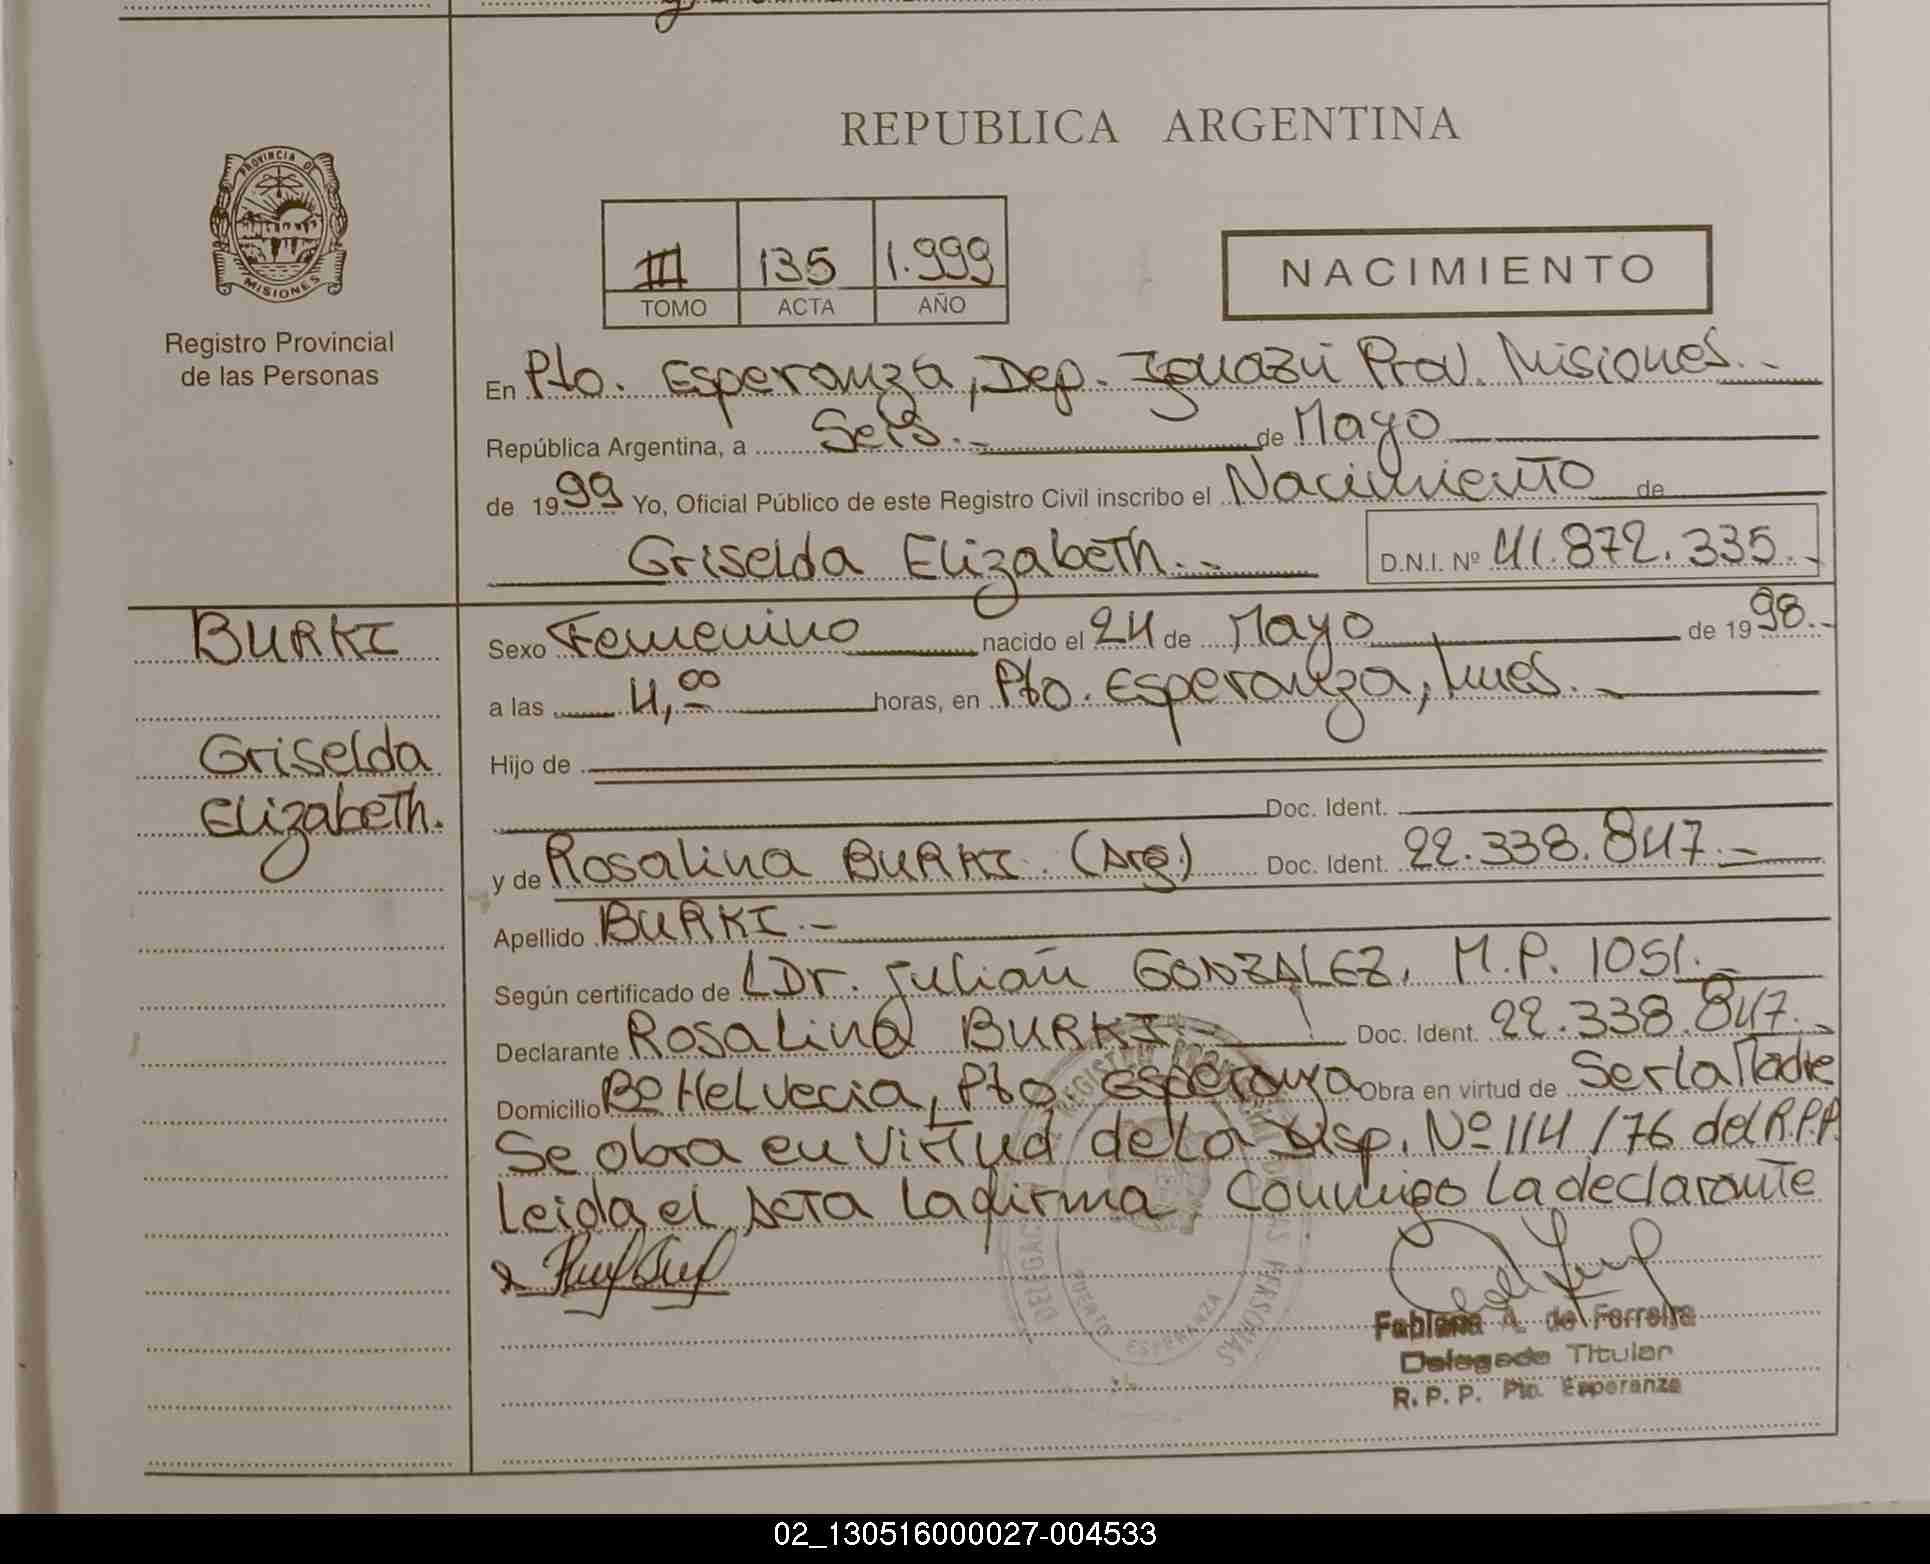 REPUBLICA ARGENTINA
PROVINCIA DE
MISIONES
Registro Provincial
de las Personas
III 135 1.999
TOMO ACTA AÑO
NACIMIENTO
En Pto. Esperanza, Dep. Iguazú Prov. Misiones.-
República Argentina, a Seis.- de Mayo
de 1999 Yo, Oficial Público de este Registro Civil inscribo el Nacimiento de
Griselda Elizabeth.- D.N.I. Nº 41.872.335.-
BURKI
Griselda
Elizabeth.
Sexo Femenino nacido el 24 de Mayo de 1998.-
a las 4,00 horas, en Pto. Esperanza, Mnes.-
Hijo de
Doc. Ident.
y de Rosalina BURKI. (Arg.) Doc. Ident. 22.338.847.-
Apellido BURKI.-
Según certificado de Dr. Julian GONZALEZ, M.P. 1051.-
Declarante Rosalina BURKI.- Doc. Ident. 22.338.847.-
Domicilio Bº Helvecia, Pto. Esperanza Obra en virtud de Ser la Madre
Se obra en virtud de la Disp. Nº 114/76 del R.P.P.
Leida el Acta la firma, Conmigo la declarante
Fabiana A. de Ferreira
Delegada Titular
R. P. P. Pto. Esperanza
PUERTO ESPERANZA
02_130516000027-004533